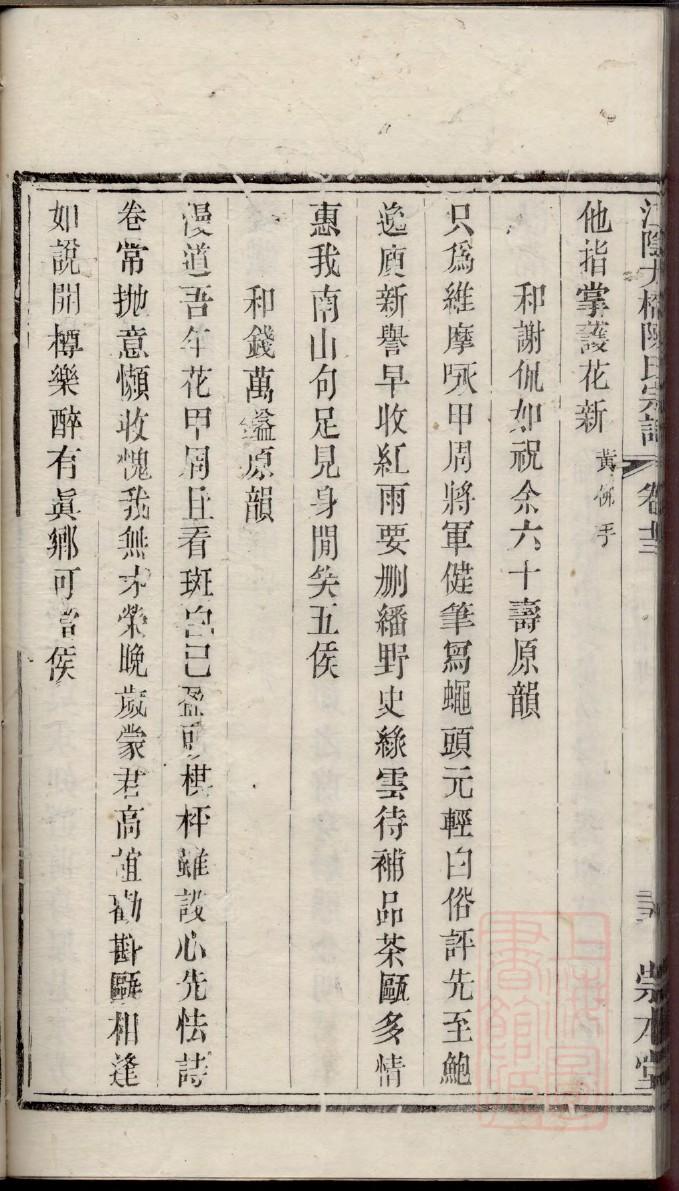 江陰九橋陳氏宗譜 卷 崇本堂
他指掌護花新 黃佛手
和謝侃如祝余六十壽原韻
只為維摩夙甲周將軍健筆寫蠅頭元輕白俗評先至鮑
逸庾新譽早收紅雨要刪繙野史綠雲待補品茶甌多情
惠我南山句足見身閒笑五侯
和錢萬鎰原韻
漫道吾年花甲周且看斑白已盈頭棋枰雖設心先怯詩
卷常拋意懶收愧我無才榮晚歲蒙君高誼勸斟甌相逢
如說開樽樂醉有眞鄉可當侯